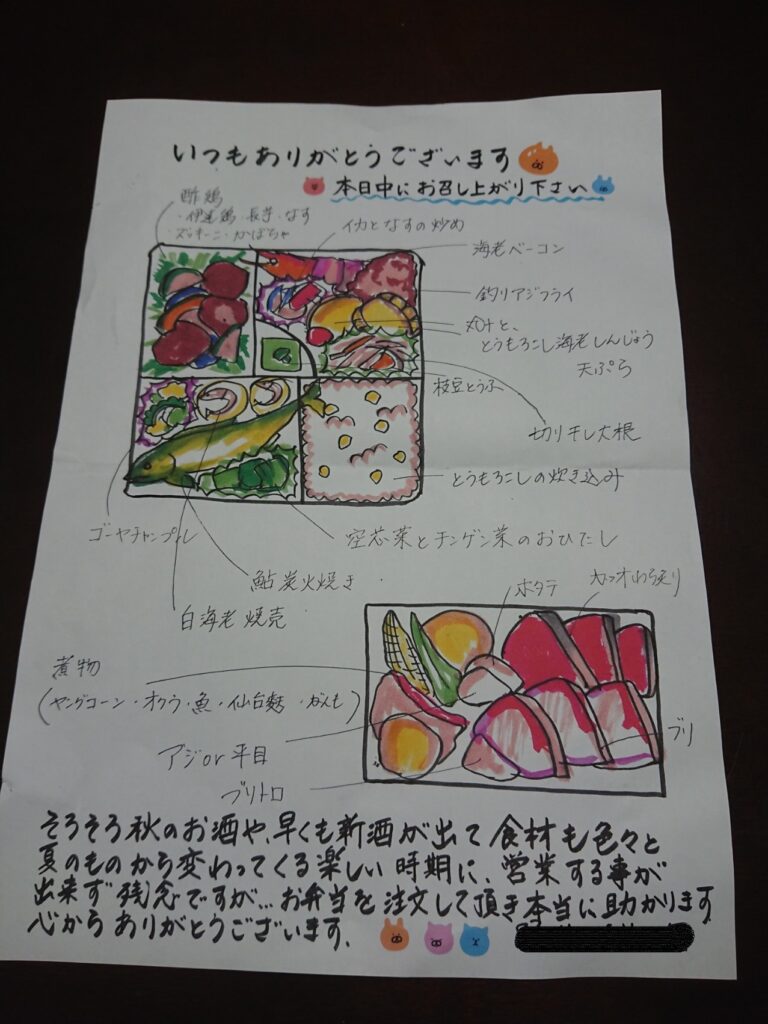 いつもありがとうございます
本日中にお召し上がり下さい
酢鶏
・伊達鶏・長芋・なす
ズッキーニ・かぼちゃ
イカとなすの炒め
海老ベーコン
釣りアジフライ
とうもろこし海老しんじょう
天ぷら
枝豆とうふ
切り干し大根
とうもろこしの炊き込み
ゴーヤチャンプル
空芯菜とチンゲン菜のおひたし
鮎炭火焼き
白海老焼売
ホタテ
カツオわら炙り
煮物
(ヤングコーン・オクラ・魚・仙台麩・がんも)
アジor平目
ブリ
ブリトロ
そろそろ秋のお酒や、早くも新酒が出て食材も色々と
夏のものから変わってくる楽しい時期に、営業する事が
出来ず残念ですが…お弁当を注文して頂き本当に助かります
心からありがとうございます.